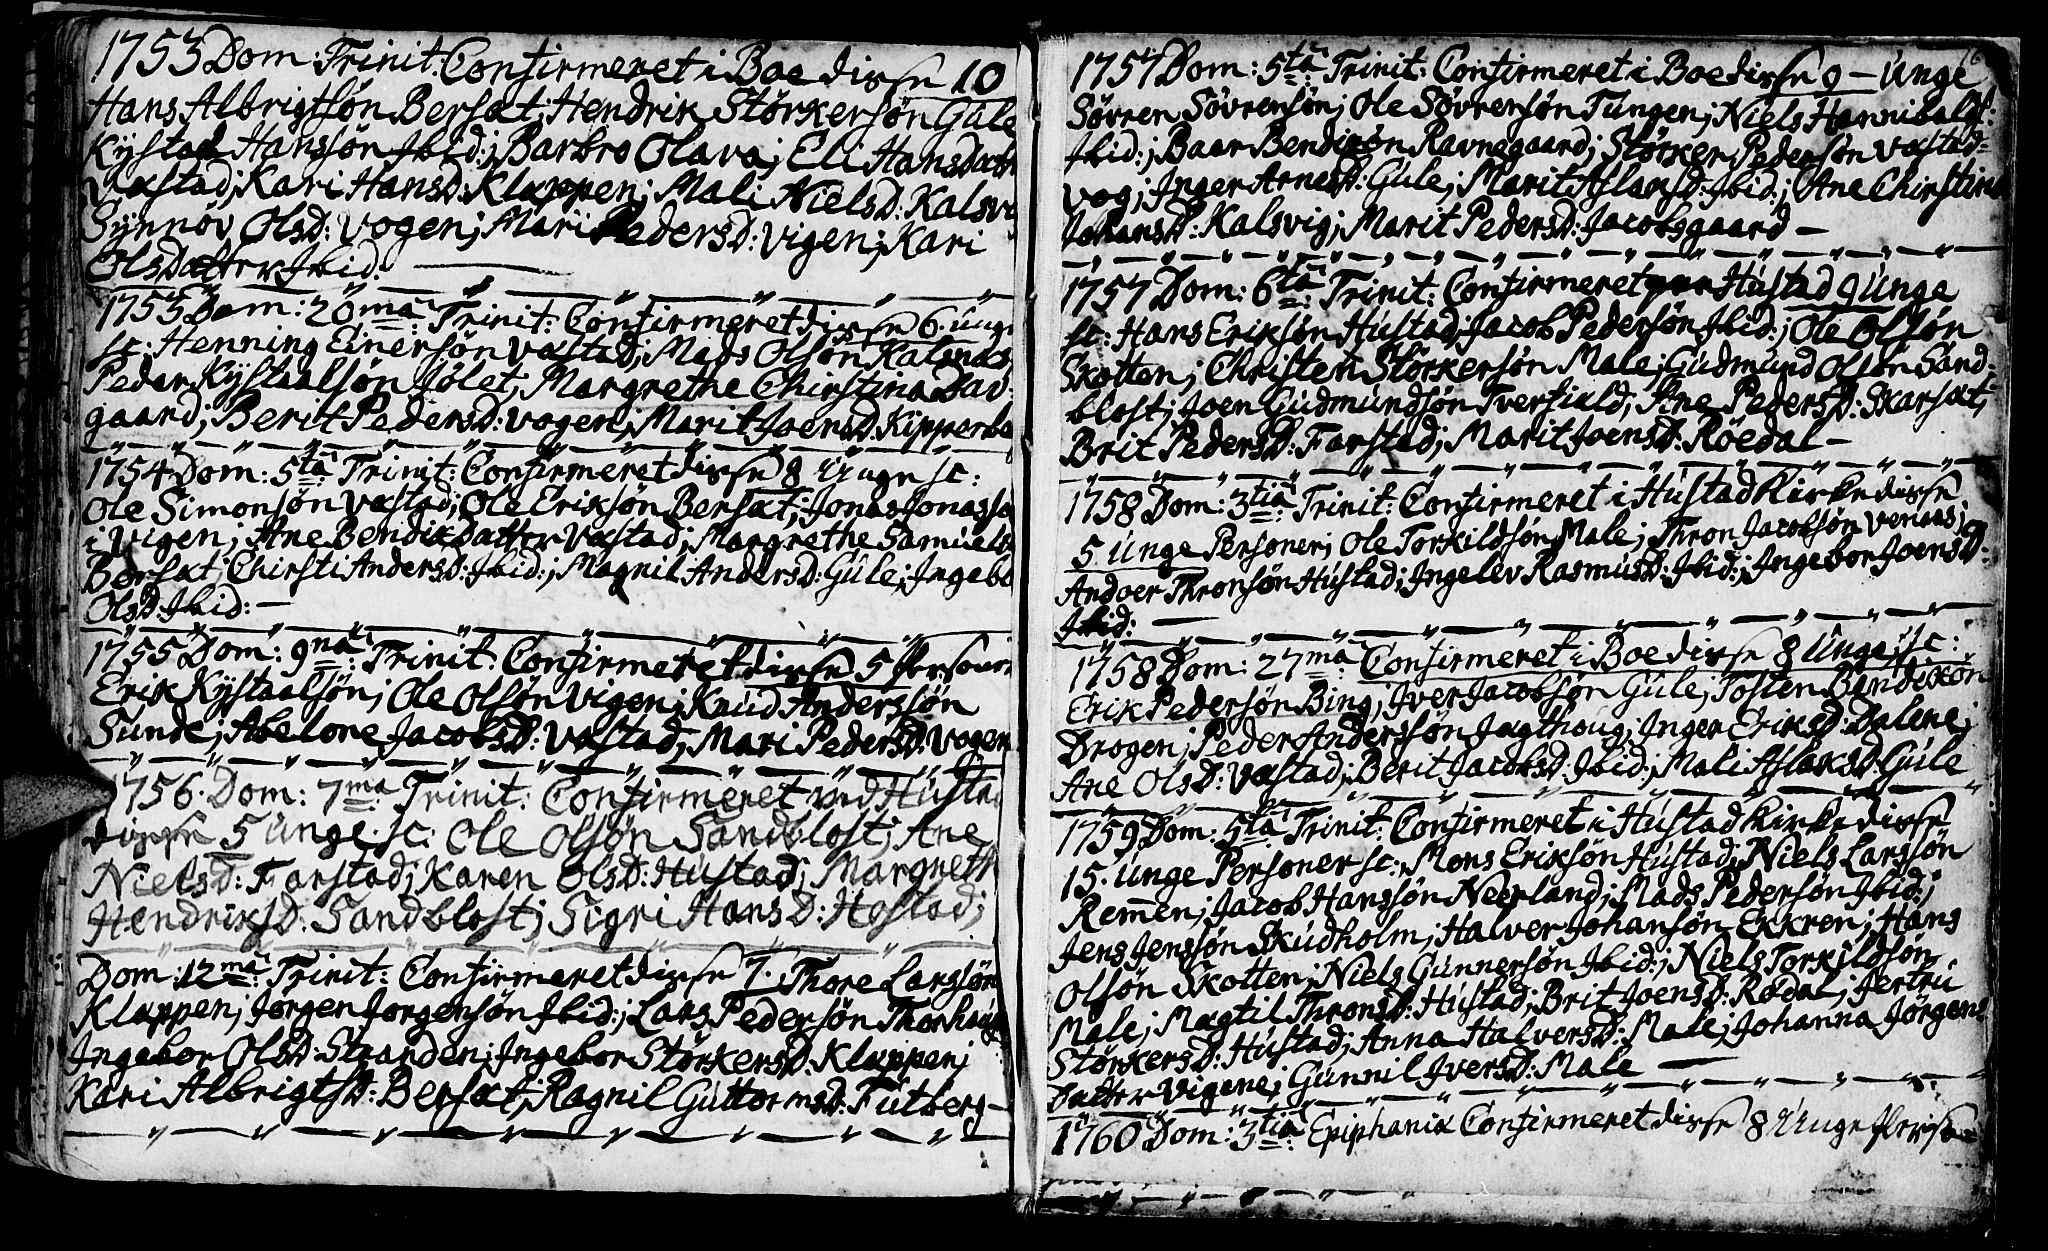 1753 Dom: Trinit: Confirmeret i Boe disse 10
Hans Albrigtsøn Bersæt; Hendrik Størkersøn Gúle
Kÿstad Hanssøn Ibid:; Barbro Olava; Eli Hansdatt
Væstad; Kari HansD: Klappen; Mali NielsD: Kalsvi
Sÿnnöv OlsD: Vogen; Mari PedersD: Vigen; Kari
OlsDatter Ibid: —
1753 Dom: 20ma Trinit: Confirmeret disse 6. unge
sc: Henning Einersøn Væstad; Mads Olsøn Kalsnæs
Peder Kÿstaalsøn Jølet; Margrethe Chirstina Dav:
gaard; Berit PedersD: Vogen; Marit JoensD: Kipperbe
1754 Dom: 5ta Trinit: Confirmeret disse 8 Unge sc:
Ole Simonsøn Væstad; Ole Eriksøn Bersæt; Jonas Jonassø
i Vigen; Ane Bendikdatter Væstad; Margrethe Samuels
Bersæt; Chirsti AndersD: Ibid:; Magnil AndersD: Gúle; Ingebo
OlsD: Ibid: —
1755 Dom: 9na Trinit: Confirmeret disse 5 Person
Erik Kÿstaalsøn; Ole Olsøn Vigen; Knúd Anderssøn
Sunde; Abelone JacobsD: Væstad; Mari PedersD: Vogen
1756. Dom: 7ma Trinit: Confirmeret ved Hústad
disse 5 unge sc: Ole Olsøn Sandblost; Ane
NielsD: Farstad; Karen OlsD: Hústad; Margreth
HendriksD: Sandblost; Sigri HansD: Hostad;
Dom: 12ma Trinit: Confirmeret disse 7. Thore Larssøn
Klappen; Jørgen Jorgensøn Ibid:; Lars Pedersøn Thorhaúg
Ingebor OlsD: Stranden; Ingebor StørkersD: Klappen;
Kari AlbrigtsD: Bersæt; Ragnil GúttormsD: Fútberg —
1757 Dom: 5ta Trinit: Confirmeret i Boe disse 9 — Únge
Søvren Søvrensøn; Ole Søvrensøn Tungen; Niels Hannibals:
Ibid:; Baar Bendixøn Ravnegaard; Størker Pedersøn Væstad-
vog; Inger ArnesD: Gúle; Marit AslaksD: Ibid:; Ane Chirstina
JohansD: Kalsvig; Marit PedersD: Jacobsgaard —
1757 Dom: 6ta Trinit: Confirmeret Hústad 9 Únge
sc: Hans Eriksøn Hústad; Jacob Pedersøn Ibid:; Ole Olsøn
Skotten; Christen Størkersøn Male; Gúdmúnd Olsøn Sand-
blost; Joen Gúdmúndsøn Tverfiald; Ane PedersD: Skarsæt;
Brit PedersD: Farstad; Marit JoensD: Röedal —
1758 Dom: 3tia Trinit: Confirmeret i Hústad Kirke disse
5 Unge Personer; Ole Torkildsøn Male; Thron Jacobsøn Vevaas;
Andoer Thronsøn Hústad; Ingelev RasmúsD: Ibid:; Ingebor JoensD:
Ibid: —
1758 Dom: 27ma Confirmeret i Boe disse 8 Unge; sc:
Erik Pedersøn Bing; Iver Jacobsøn Gúle; Tosten Bendixøn
Drogen; Peder Anderssøn Jagthoug; Inger EriksD: Dalene;
Ane OlsD: Væstad; Berit JacobsD: Ibid:; Mali AslaksD: Gúle
1759 Dom: 5ta Trinit: Confirmeret i Hústad Kirke disse
15. unge Personer sc: Mons Eriksøn Hústad; Niels Larssøn
Remen; Jacob Hanssøn Neerland; Mads Pedersøn Ibid:;
Jens Jenssøn Skúdholm; Halver Johansøn Ekkren; Hans
Olsøn Skotten; Niels Gúnnersøn Ibid:; Niels Torkildsøn
Male; Magtil ThronsD: Hústad; Brit JoensD: Rødal; Jertrú
StørkersD: Hústad; Anna HalversD: Male; Johanna Jørgens
Datter Vigene; Gúnnil IversD: Male —
1760 Dom: 3tia Epiphaniæ Confirmeret disse 8 Unge Perso=